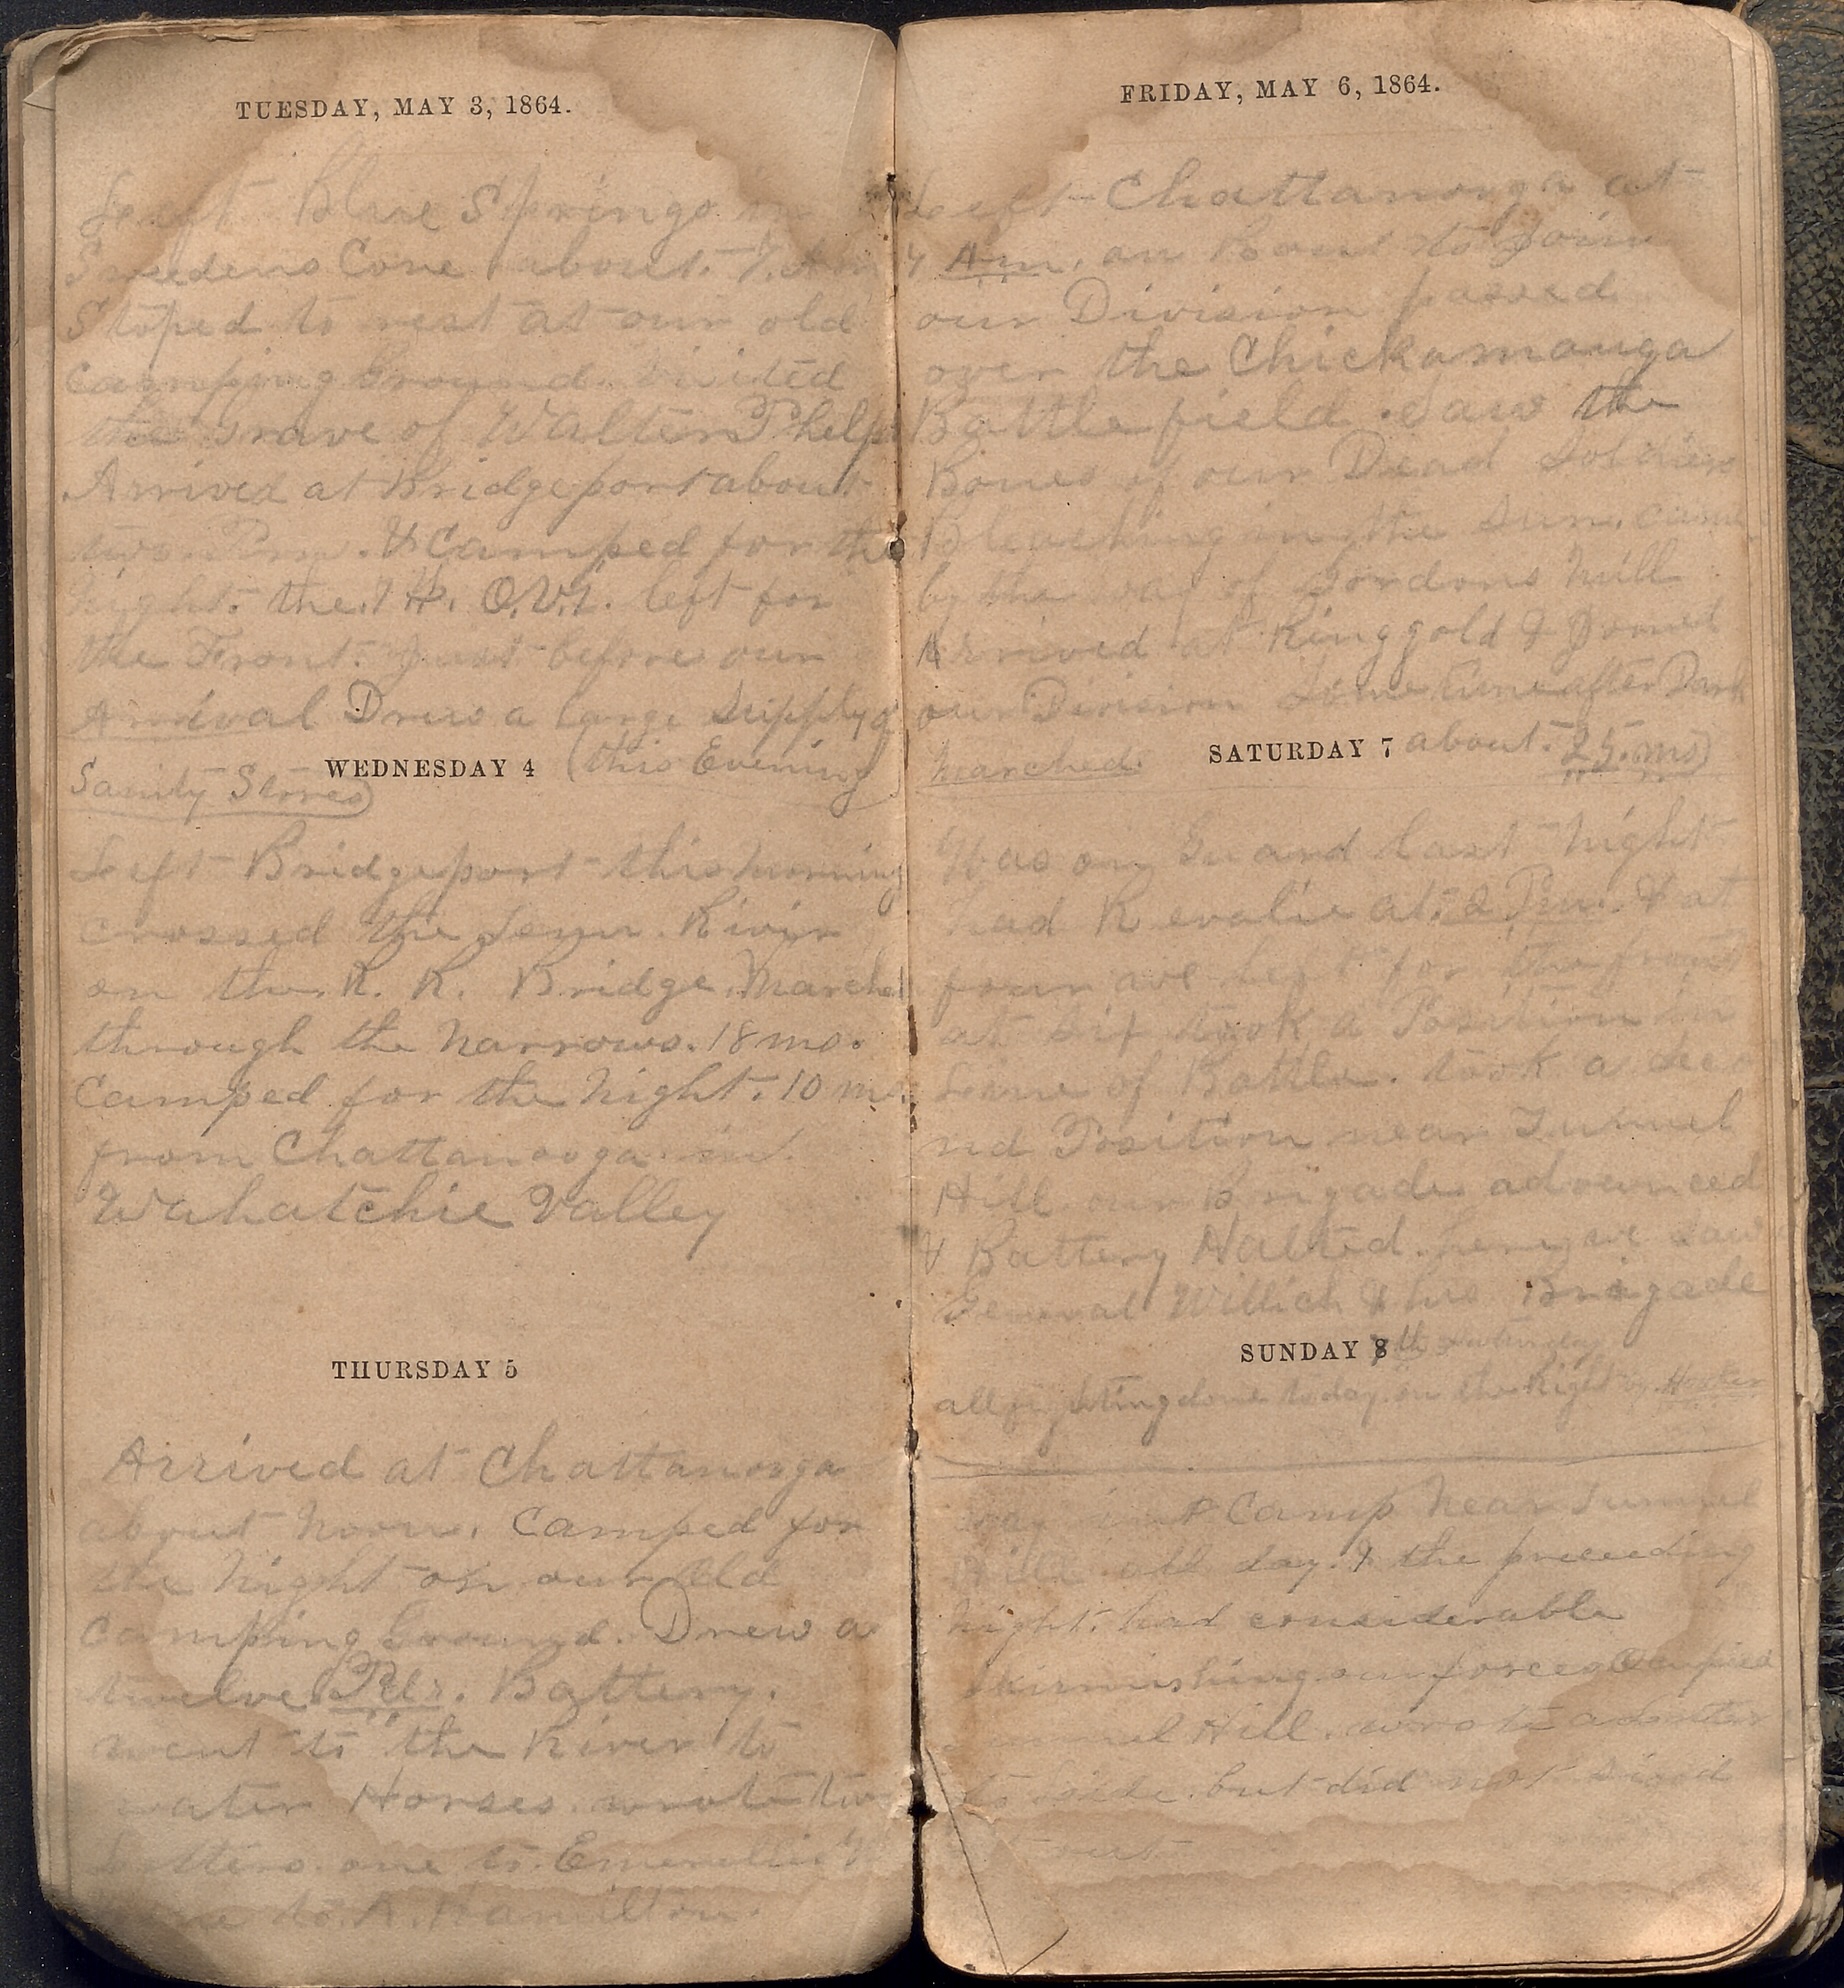 TUESDAY, MAY 3, 1864.
Left Blue Springs in
Sweedens Cove about 7. Am
Stoped to rest at our old
camping Ground. visited
the Grave of Walter Phelps
Arrived at Bridgeport about
two Pm. & Camped for the
night. the 7 H. O.V.I. left for
the Front. Just before our
Arrival Drew a large Supply of
WEDNESDAY 4 (this Evening
Sanity Stores)
Left Bridgeport this morning
crossed the Tenn. River
on the R. R. Bridge. March
through the Narrows. 18 ms.
Camped for the Night. 10 ms.
from Chattanooga in
Wahatchie Valley
THURSDAY 5
Arrived at Chattanooga
about Noon. Camped for
the Night on our Old
Camping Ground. Drew a
twelve Pdr. Battery.
went to the River to
water Horses. wrote two
Letters. one to Emerellie
to A. Hamilton.
FRIDAY, MAY 6, 1864.
Left Chattanooga at
Am. on Rout to Join
our Division passed
over the Chickamauga
Battle field. Saw the
Bones of our Dead Soldiers
Bleaching in the Sun. came
by the way of Gordons Mill
Arrived at Ringgold & Joined
our Division Some time after Dark
Marched. SATURDAY 7 about. 25. ms)
Was on Guard last Night
had Revalie at. 2 Pm. & at
four we left for the front
at six took a Position in
Line of Battle. took a Seco
nd Position near Tunnel
Hill our Brigade advanced
& Battery Halted. here we Saw
General Willich & his Brigade
SUNDAY 8 th saturday
all fighting done to day. on the Right by Hooker
lay in Camp Near Tunnel
Hill all day. & the preceeding
Night. had considerable
Skirmishing our forces Occupied
Tunnel Hill. wrote a Letter
to but did not Send